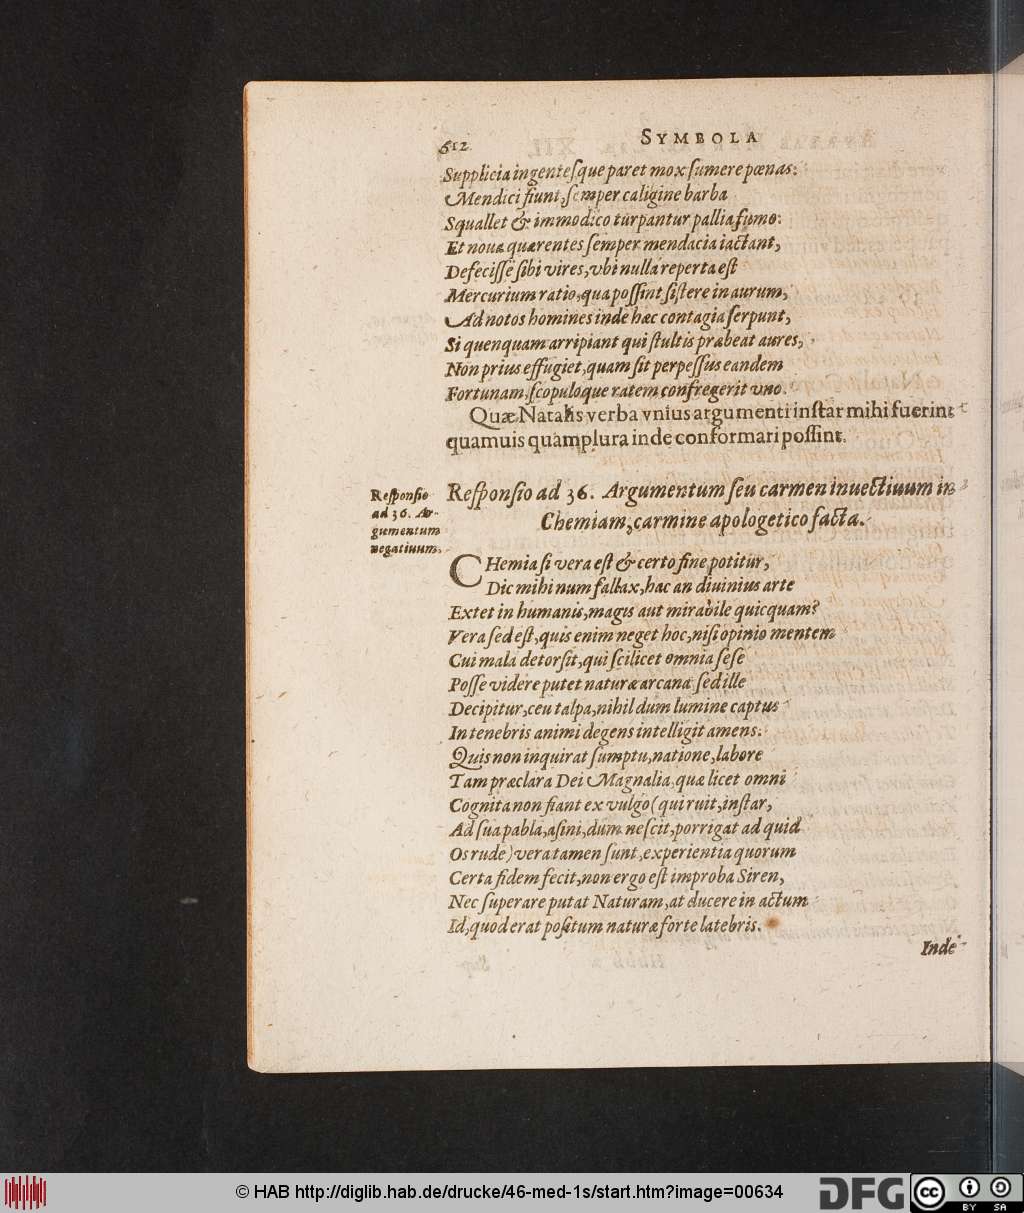 612 SYMBOLA
Supplicia ingentesque paret mox sumere pœnas:
Mendici fiunt, semper caligine barba
Squallet & immodico turpantur pallia fumo:
Et noua quærentes semper mendacia iactant,
Defecisse sibi vires, vbi nulla reperta est
Mercurium ratio, qua possint sistere in aurum,
Ad notos homines inde hæc contagia serpunt,
Si quenquam arripiant qui stultis præbeat aures,
Non prius effugiet, quam sit perpessus eandem
Fortunam, scopuloque ratem confregerit vno.
Quæ Natalis verba vnius argumenti instar mihi fuerint
quamuis quamplura inde conformari possint.
Responsio
ad 36. Ar-
gumentum
negatiuum.
Responsio ad 36. Argumentum seu carmen inuectiuum in
Chemiam, carmine apologetico facta.
CHemia si vera est & certo fine potitur,
Dic mihi num fallax, hac an diuinius arte
Extet in humanis, magis aut mirabile quicquam?
Vera sed est, quis enim neget hoc, nisi opinio mentem
Cui mala detorsit, qui scilicet omnia sese
Posse videre putet naturæ arcana sed ille
Decipitur, ceu talpa, nihil dum lumine captus
In tenebris animi degens intelligit amens.
Quis non inquirat sumptu, natione, labore
Tam præclara Dei Magnalia, quæ licet omni
Cognita non fiant ex vulgo (qui ruit, instar,
Ad sua pabla, asini, dum nescit, porrigat ad quid
Os rude) vera tamen sunt, experientia quorum
Certa fidem fecit, non ergo est improba Siren,
Nec superare putat Naturam, at ducere in actum
Id, quod erat positum naturæ forte latebris.
Inde
© HAB http://diglib.hab.de/drucke/46-med-1s/start.htm?image=00634
DFG
cc BY SA